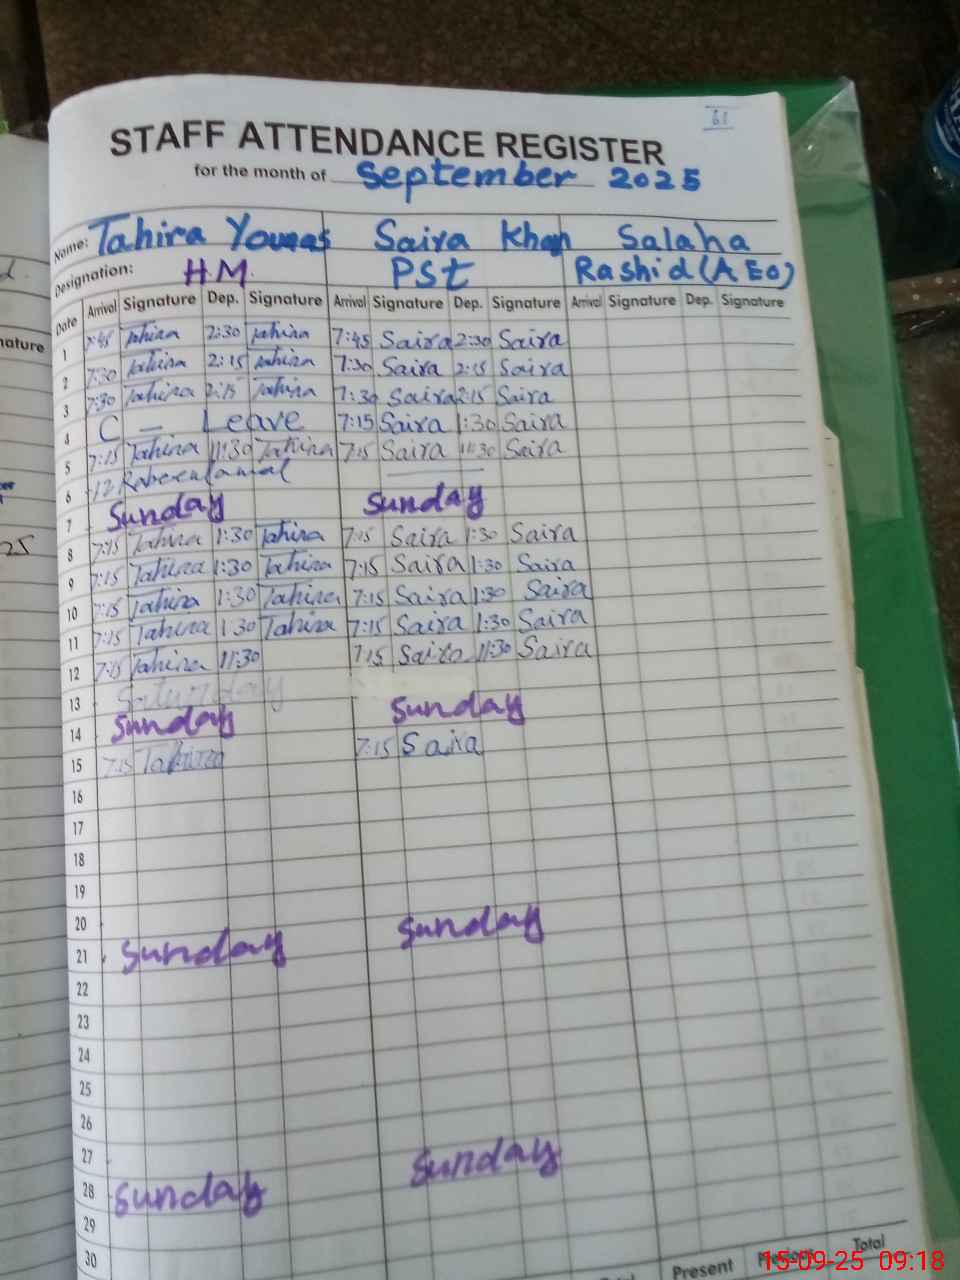 61
STAFF ATTENDANCE REGISTER
for the month of September 2025
Name: Tahira Younas Saira Khan Salaha
Designation: H.M. PST Rashid (AEO)
Date Arrival Signature Dep. Signature Arrival Signature Dep. Signature Arrival Signature Dep. Signature
1 7:45 Tahira 2:30 Tahira 7:45 Saira 2:30 Saira
2 7:30 Tahira 2:15 Tahira 7:30 Saira 2:15 Saira
3 7:30 Tahira 2:15 Tahira 7:30 Saira 2:15 Saira
4 C – Leave 7:15 Saira 1:30 Saira
5 7:15 Tahira 11:30 Tahira 7:15 Saira 11:30 Saira
6 12
7 Sunday Sunday
8 7:15 Tahira 1:30 Tahira 7:15 Saira 1:30 Saira
9 7:15 Tahira 1:30 Tahira 7:15 Saira 1:30 Saira
10 7:15 Tahira 1:30 Tahira 7:15 Saira 1:30 Saira
11 7:15 Tahira 1 30 Tahira 7:15 Saira 1:30 Saira
12 7:15 Tahira 11:30 7:15 Saira 11:30 Saira
13 Saturday
14 Sunday Sunday
15 7:15 Tahira 7:15 Saira
16
17
18
19
20
21 Sunday Sunday
22
23
24
25
26
27
28 Sunday Sunday
29
30
Present Total
ature
25
15-09-25 09:18